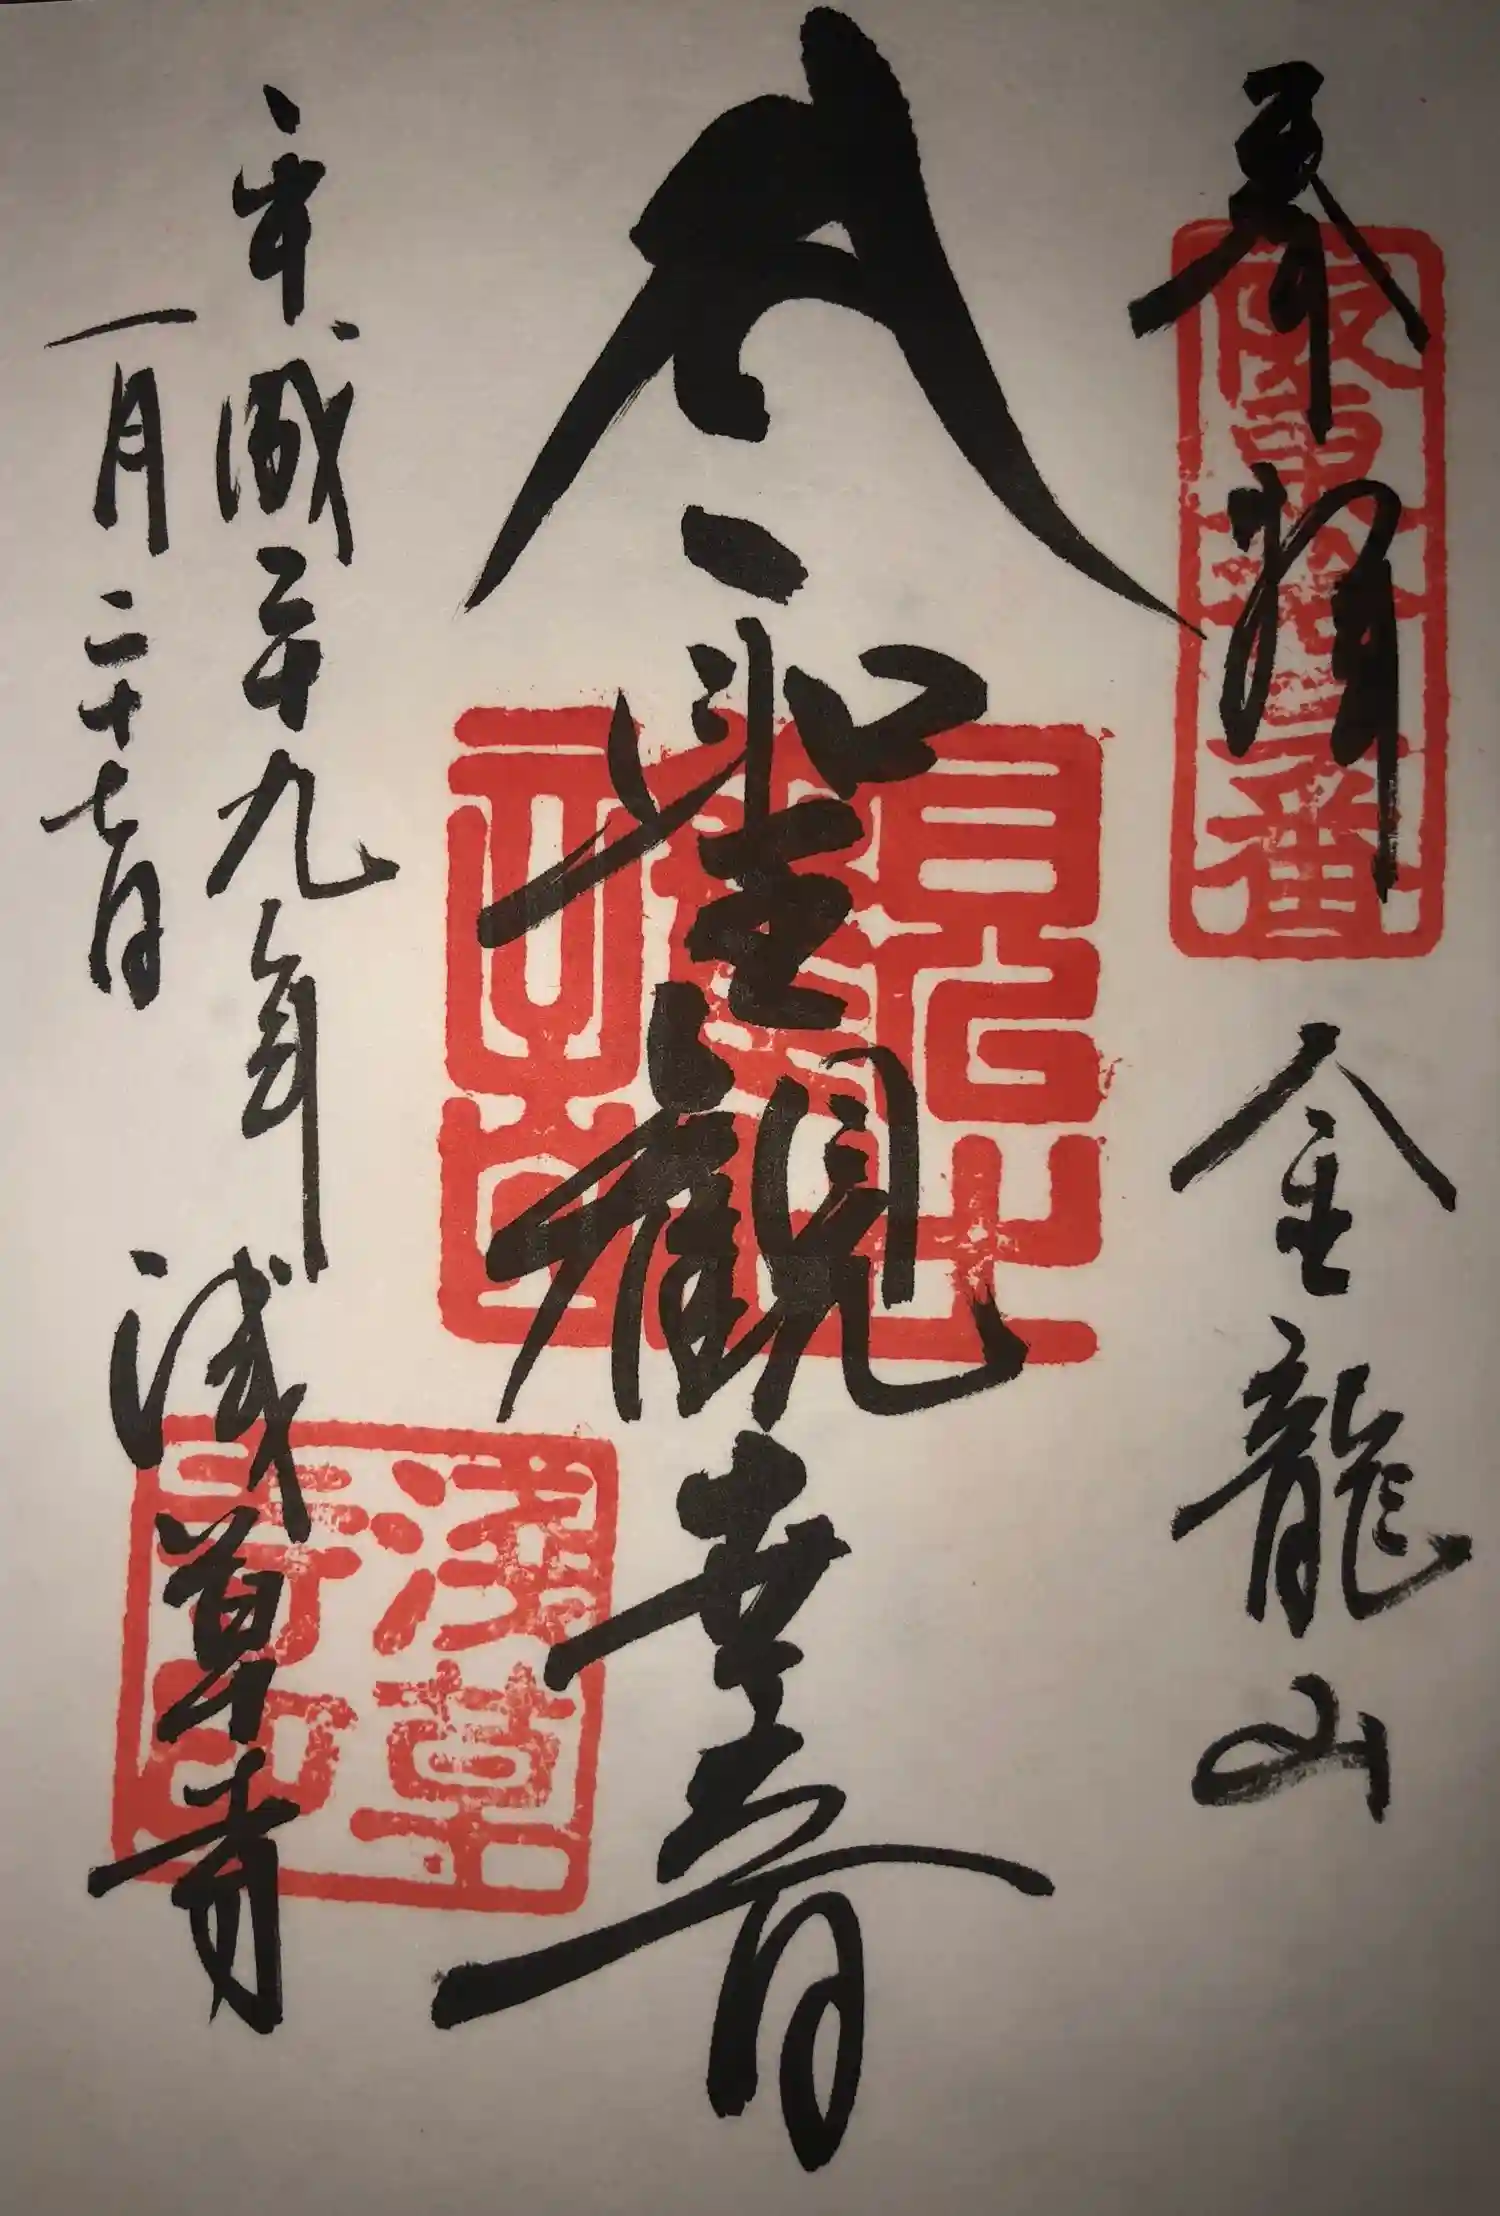 奉拝
阪東拾三番
金龍山
聖觀世音
平成二十九年
一月二十七日
浅草寺
浅草寺印